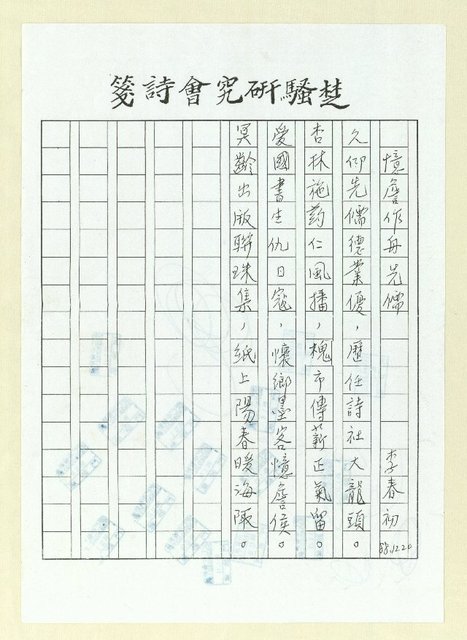 箋詩會究研騷楚
憶詹作舟先儒 李春初 88.12.20
久仰先儒德業優，歷任詩社大龍頭。
杏林施药仁風播，槐市傳薪正氣留。
愛國書生仇日寇，懷鄉墨客憶詹侯。
冥齡出版聯珠集，紙上陽春暖海陬。